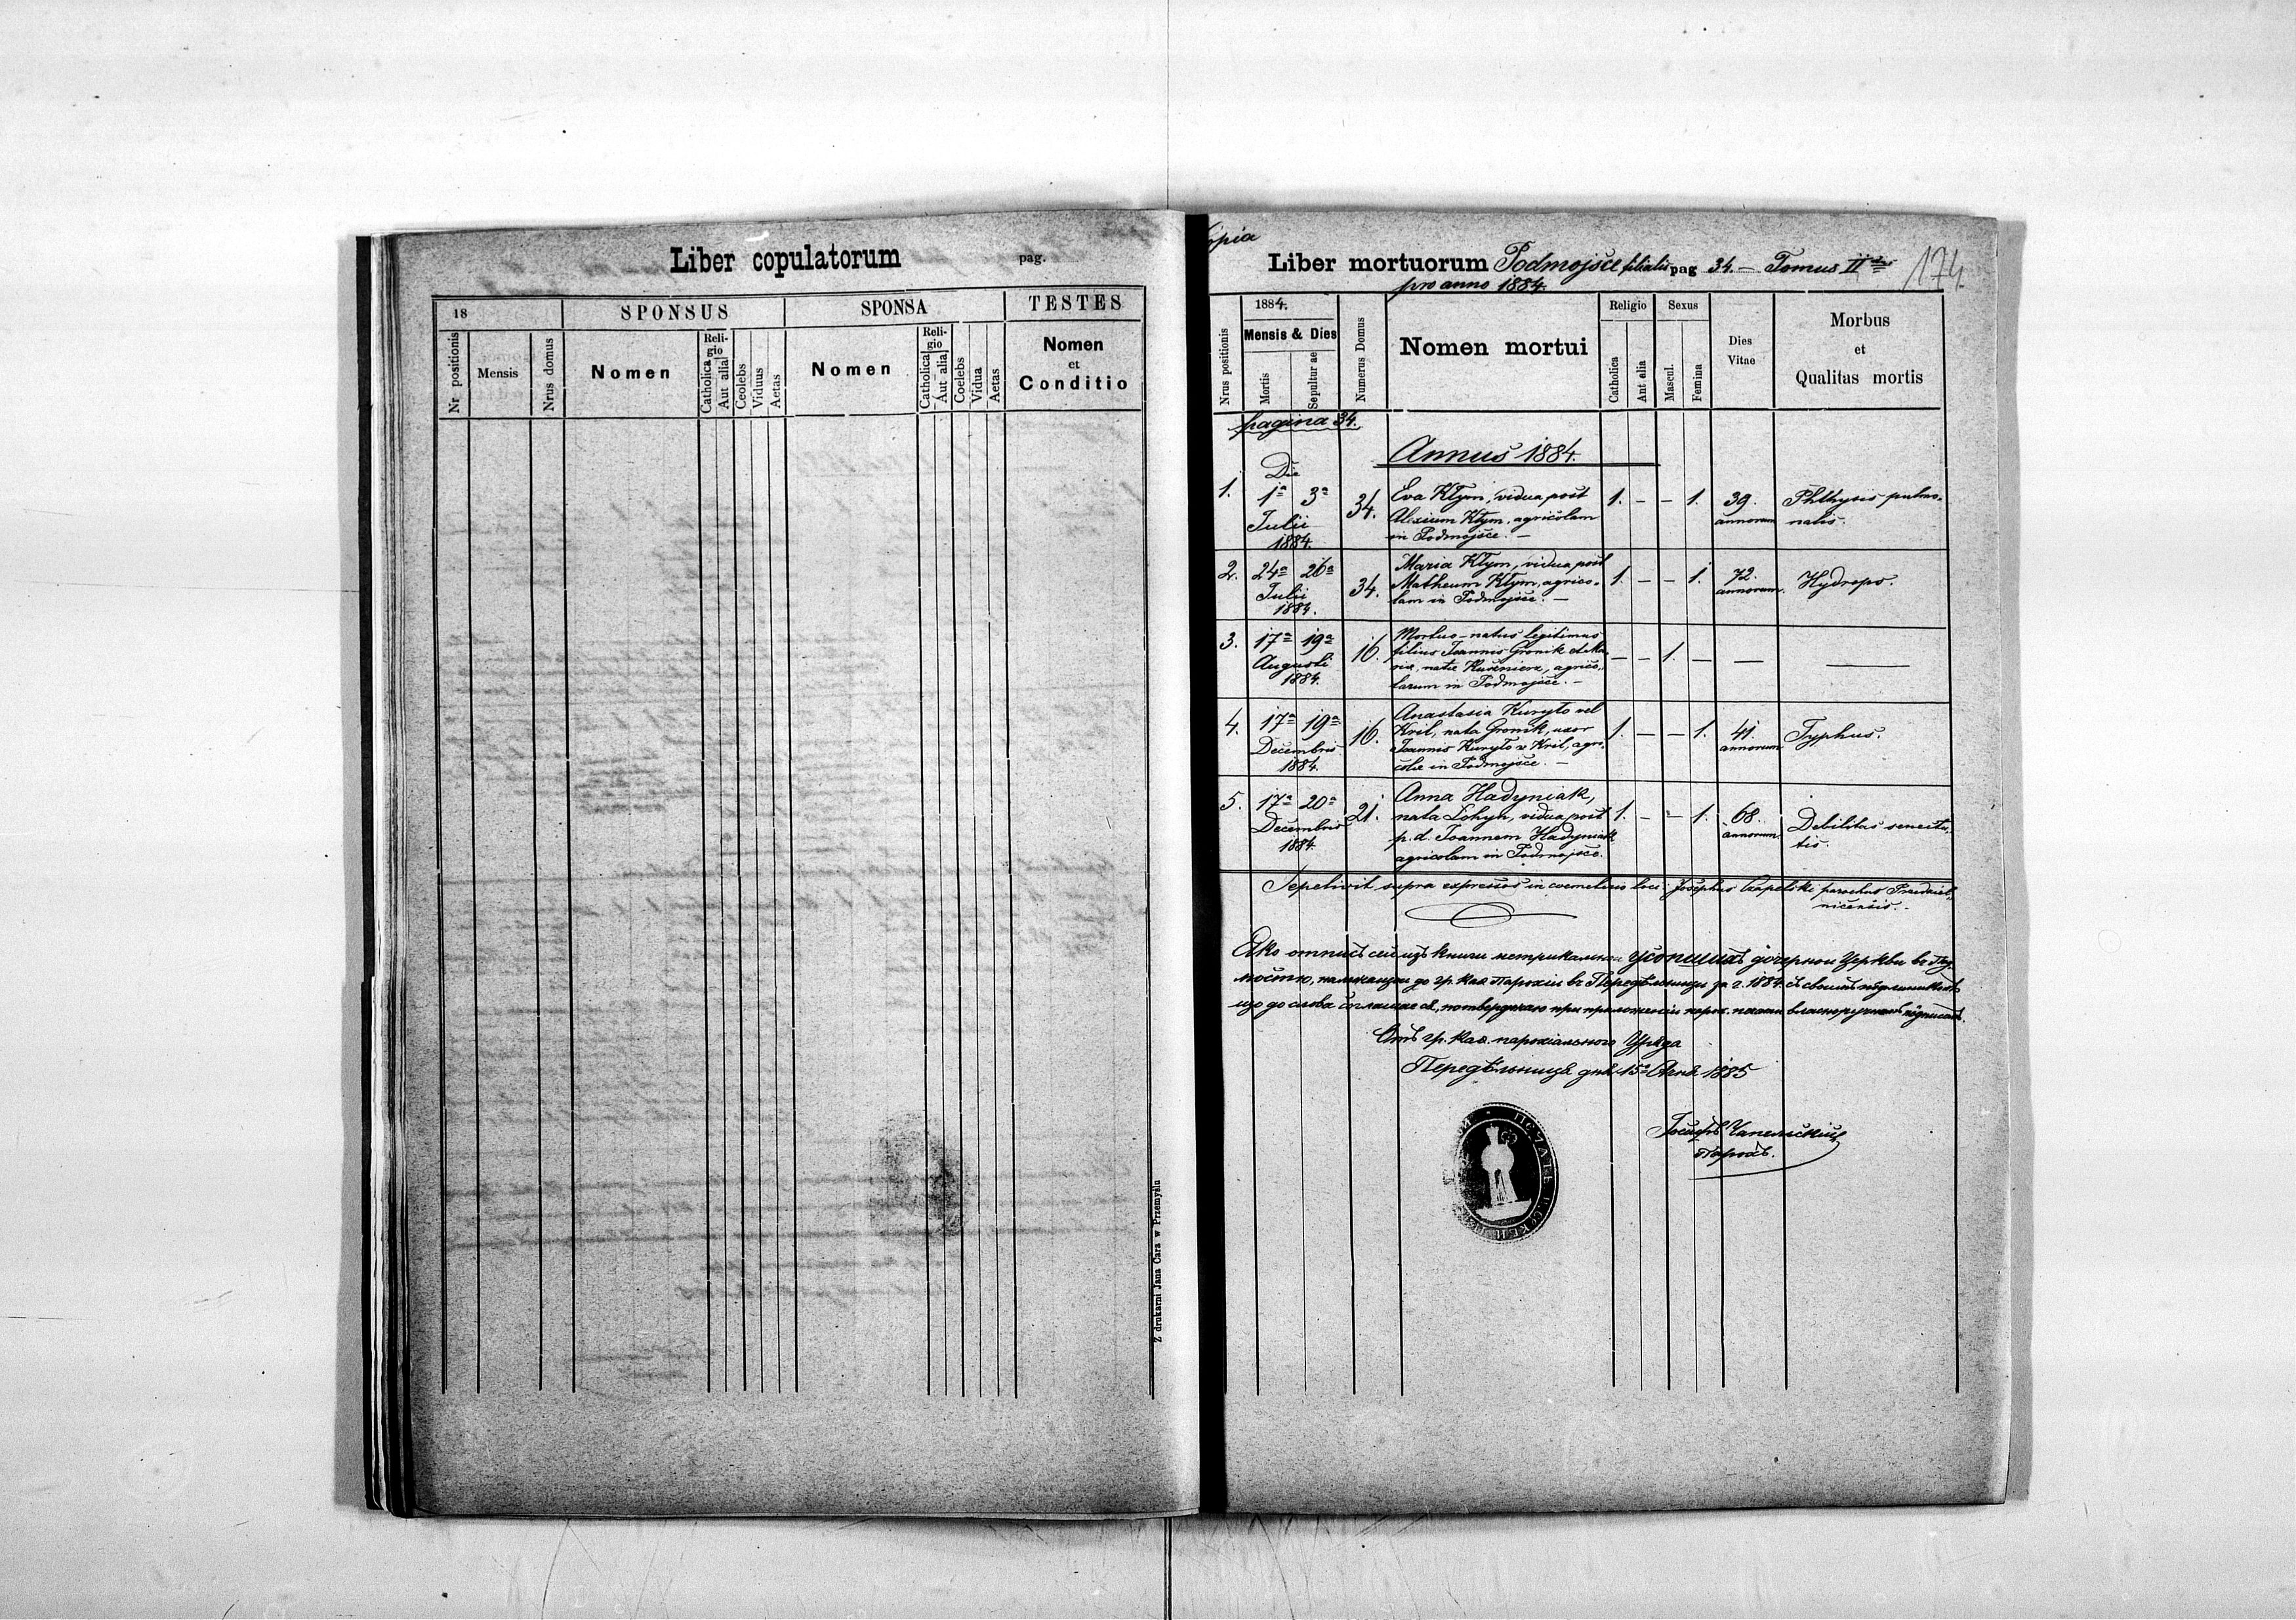 Liber copulatorum
pag.
18
SPONSUS
SPONSA
TESTES
Nr positionis
Mensis
Nrus domus
Nomen
Religio
Catholica
Aut alia
Ceolebs
Viduus
Aetas
Nomen
Religio
Catholica
Aut alia
Coelebs
Vidua
Aetas
Nomen
et
Conditio
Z drukarni Jana Cara w Przemyślu
Copia
Liber mortuorum Podmojsce filialis pag 34. — Tomus II
174
pro anno 1884.
Nrus positionis
1884.
Mensis & Dies
Mortis
Sepultur ae
Numerus Domus
Nomen mortui
Religio
Catholica
Aut alia
Sexus
Mascul.
Femina
Dies
Vitae
Morbus
et
Qualitas mortis
pagina 34.
Annus 1884.
Die
1. 1a 3a Julii 1884. 34.
Eva Kłym, vidua post
Alexium Kłym, agricolam
in Podmojsce. —
1. — — 1. 39. annorum
Phthysis pulmo-
nalis.
2. 24a 26a Julii 1884. 34.
Maria Kłym, vidua post
Matheum Kłym, agrico-
lam in Podmojsce. —
1. — — 1. 72. annorum.
Hydrops.
3. 17a 19a Augusti 1884. 16.
Mortuo-natus legitimus
filius Joannis Gronik et Ma-
riae, natae Kuśnierz, agrico-
larum in Podmojsce. —
— — 1. — —
4. 17a 19a Decembris 1884. 16.
Anastasia Kuryło vel
Kril, nata Gronik, uxor
Joannis Kuryło v. Kril, agri-
colae in Podmojsce. —
1. — — 1. 41. annorum
Typhus.
5. 17a 20a Decembris 1884. 21.
Anna Hadyniak,
nata Łohyn, vidua post
p. d. Joannem Hadyniak
agricolam in Podmojsce.
1. — — 1. 68. annorum
Debilitas senectu-
tis.
Sepelivit supra expressos in coemeterio loci: Josephus Czapelski parochus Przedziel-
nicensis. —
Яко отписъ сей изъ книги метрикальнои усопшихъ дочернои Церкви въ
належащои до гр. кат. Парохіи въ Передѣльници за г. 1884. съ своимъ
що до слова согласуе ся, потверджаю при приложенію парох. печати власноручнымъ подписомъ.
Отъ гр. кат. парохіального Уряда
Передѣльница дня 15 1885
Іосифъ Чапельскій
Парохъ.
ПЕЧАТЬ